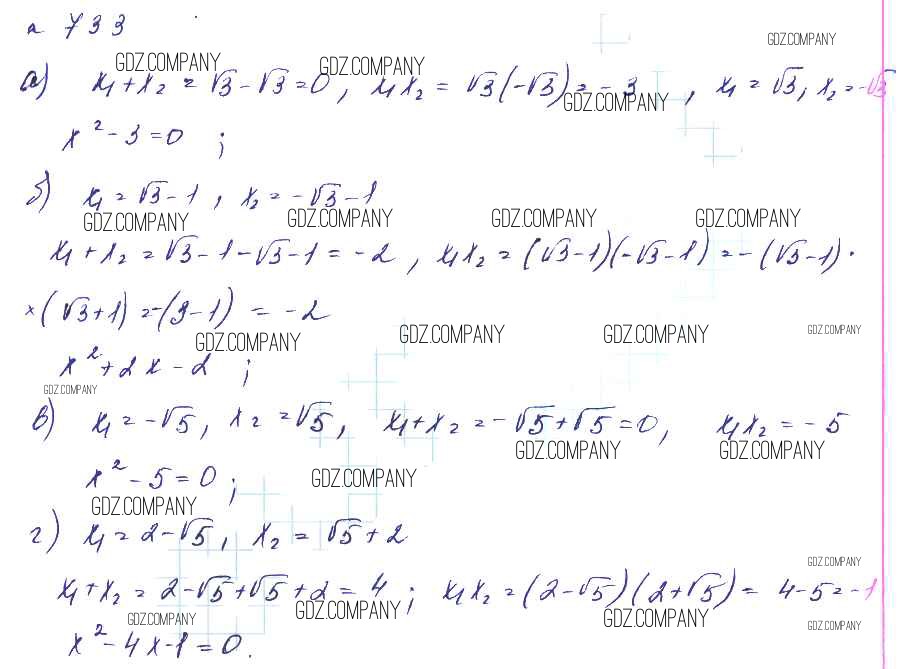 n 733
GDZ.COMPANY GDZ.COMPANY GDZ.COMPANY
а) x₁+x₂ = √3-√3=0, x₁x₂ = √3(-√3) = -3, x₁ = √3, x₂=-√3
GDZ.COMPANY
x²-3=0;
б) x₁=√3-1, x₂=-√3-1
GDZ.COMPANY GDZ.COMPANY GDZ.COMPANY GDZ.COMPANY
x₁+x₂=√3-1-√3-1=-2, x₁x₂=(√3-1)(-√3-1)=-(√3-1)·
×(√3+1)=-(3-1) = -2
GDZ.COMPANY GDZ.COMPANY GDZ.COMPANY GDZ.COMPANY
x²+2x-2;
GDZ.COMPANY
в) x₁=-√5, x₂=√5, x₁+x₂=-√5+√5=0, x₁x₂=-5
GDZ.COMPANY GDZ.COMPANY
x²-5=0;
GDZ.COMPANY
GDZ.COMPANY
г) x₁=2-√5, x₂=√5+2
GDZ.COMPANY
x₁+x₂=2-√5+√5+2=4; x₁x₂=(2-√5)(2+√5)=4-5=-1
GDZ.COMPANY GDZ.COMPANY GDZ.COMPANY GDZ.COMPANY
x²-4x-1=0.